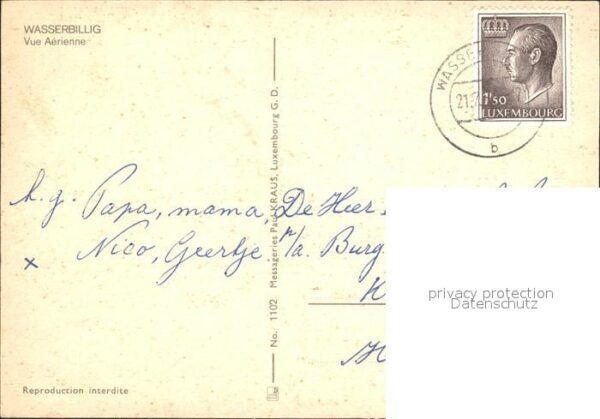 WASSERBILLIG
Vue Aérienne
WASSE
21.
1F50
LUXEMBOURG
b
h. g. Papa, mama, De Heer
x Nico, Geertje, p/a. Burg.
K
H
No. 1102 Messageries Paul KRAUS, Luxembourg G. D.
privacy protection
Datenschutz
Reproduction interdite